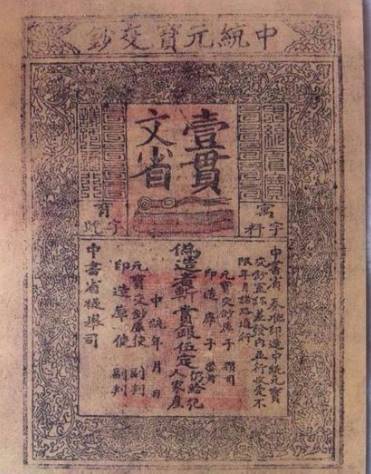 中統元寶交鈔
壹貫
文省
字料
字號
中書省 奏准印造中統元寶
交鈔宣課差發內並行收受不
限年月諸路通行
元寶交鈔庫子 攢司
印造庫子 攢司
偽造者斬賞銀伍定仍給犯
人家產
中統 年 月 日
元寶交鈔庫使 副判
印造庫使 副判
中書省提舉司